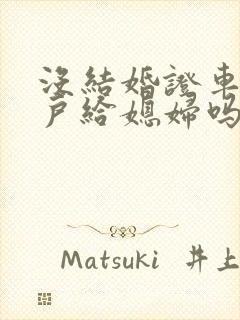 沒結婚證車
戶給媳婦嗎
Matsuki 井上